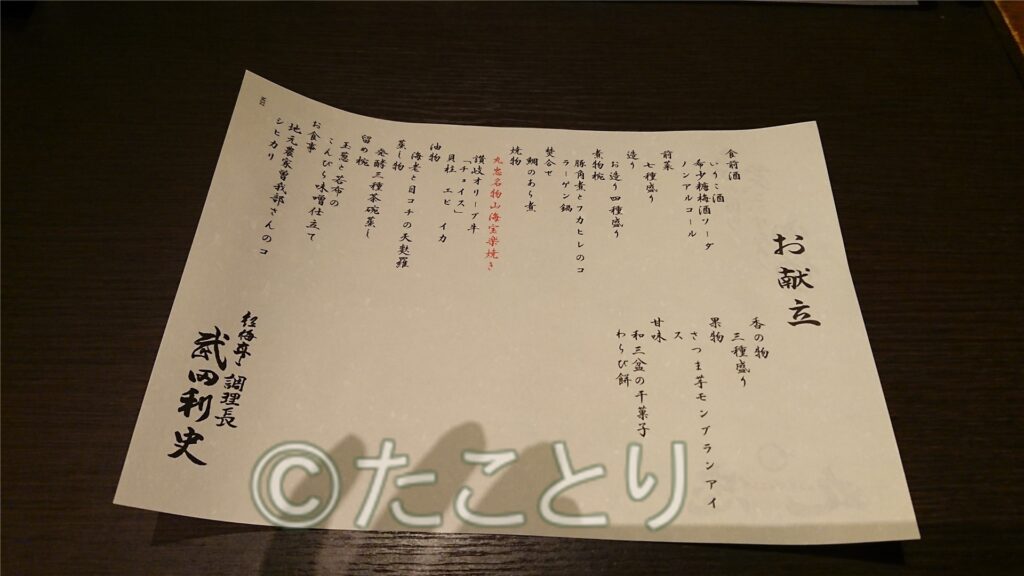 お献立
食前酒
いりこ酒
希少糖梅酒ソーダ
ノンアルコール
前菜
七種盛り
造り
お造り四種盛り
煮物椀
豚角煮とフカヒレのコ
ラーゲン鍋
焚合せ
鯛のあら煮
焼物
丸忠名物山海宝楽焼き
讃岐オリーブ牛
「チョイス」
貝柱 エビ イカ
油物
海老と目コチの天麩羅
蒸し物
発酵三種茶碗蒸し
留め椀
玉葱と若布の
こんぴら味噌仕立て
お食事
地元農家曽我部さんのコ
シヒカリ
香の物
三種盛り
果物
さつま芋モンブランアイ
ス
甘味
和三盆の干菓子
わらび餅
紅梅亭 調理長
武田利史
©たことり